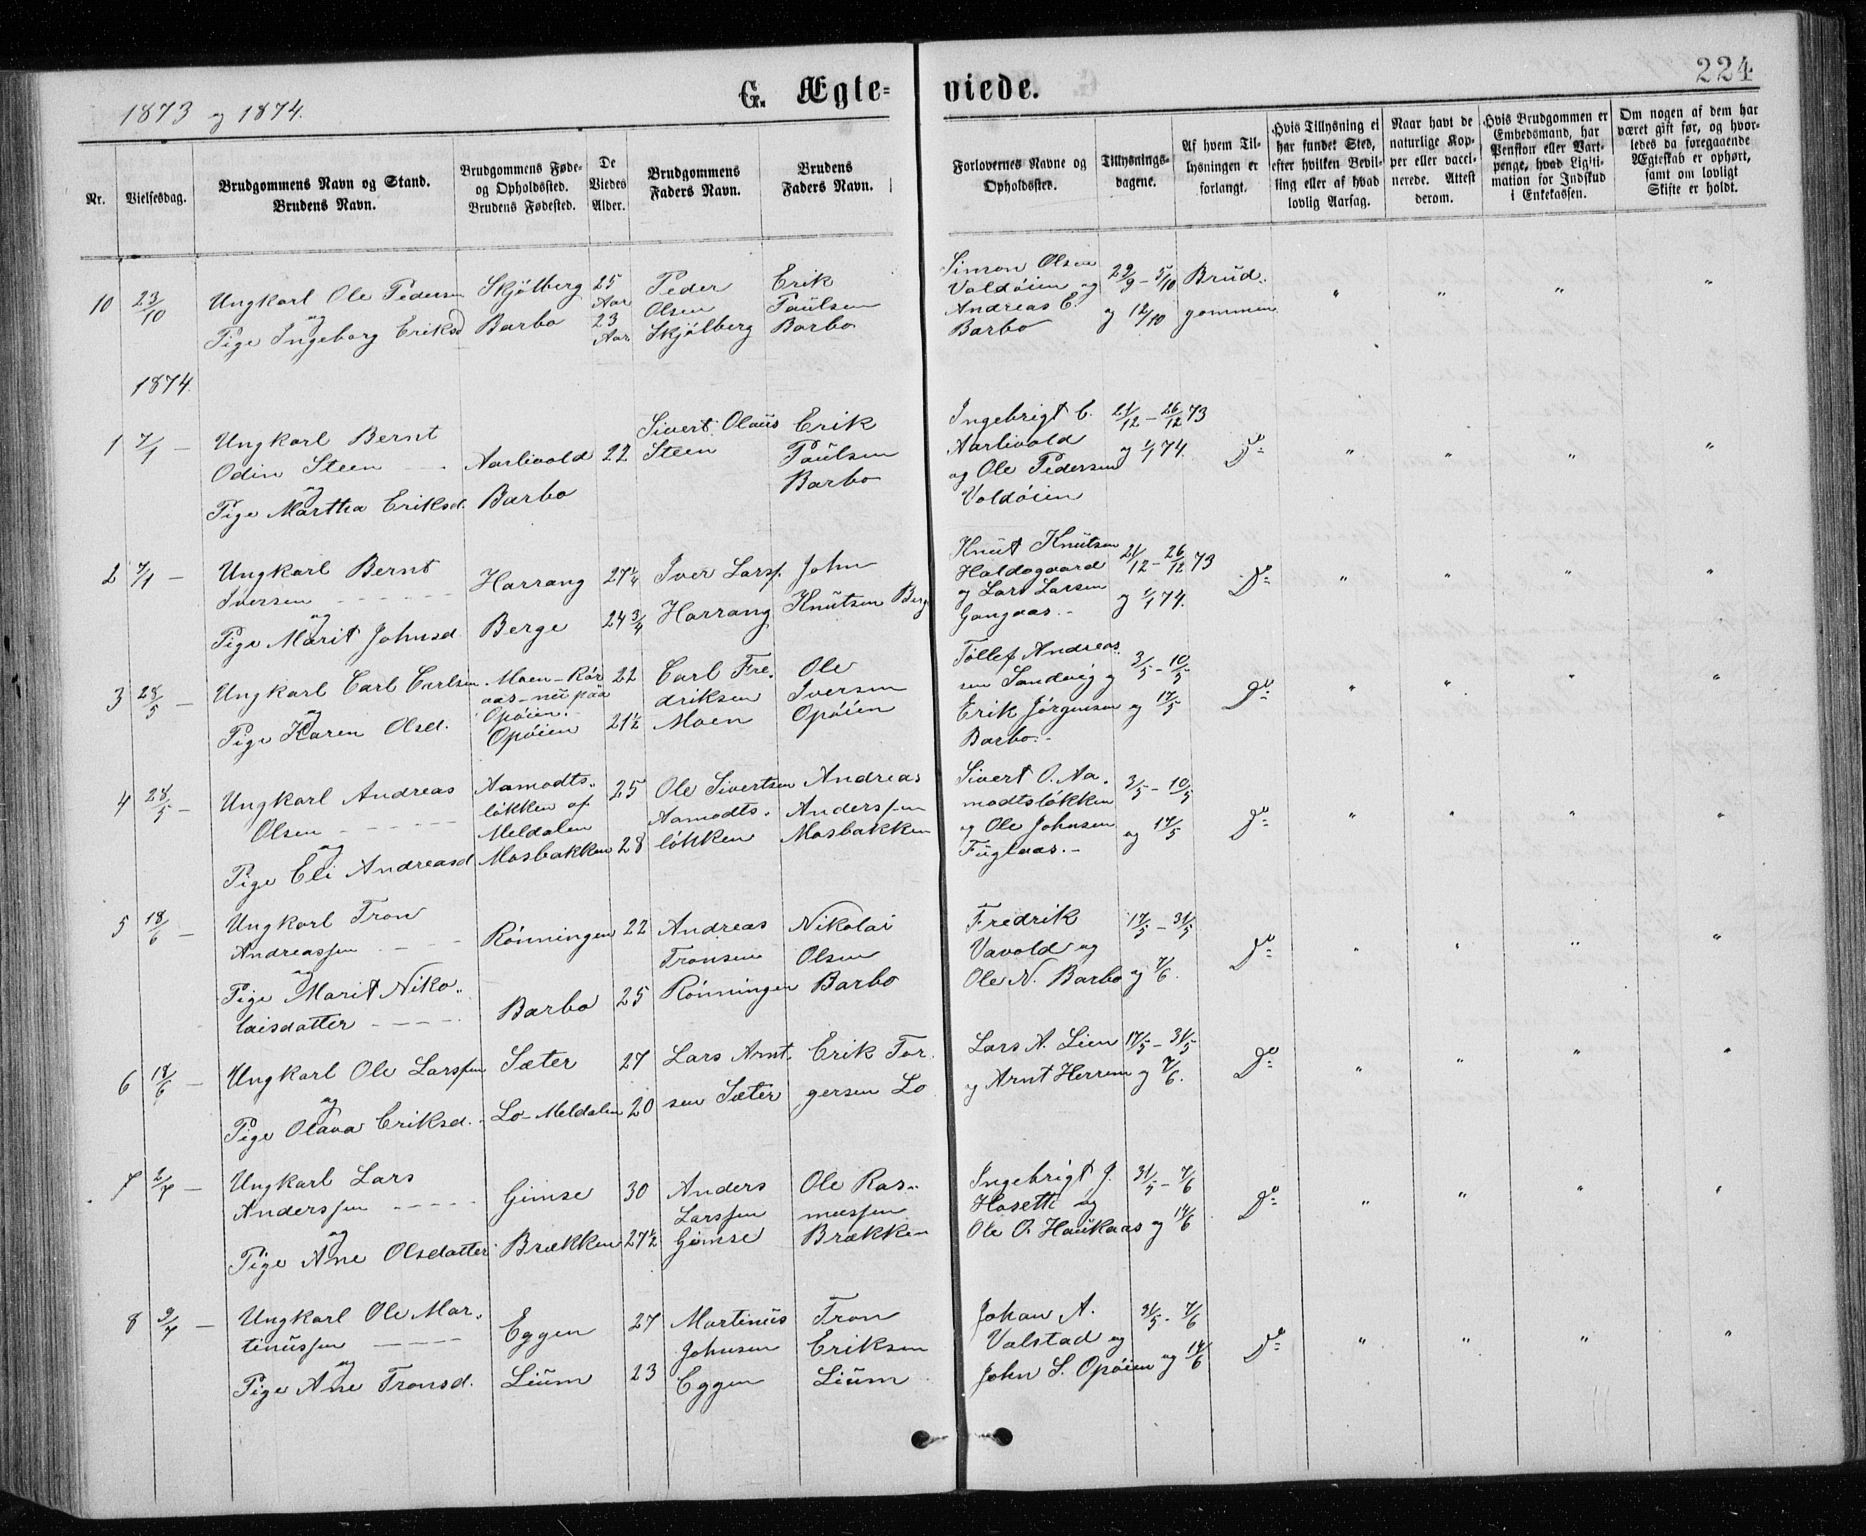 224
1873 og 1874.
G. Ægte=viede.
Nr.
Vielsesdag.
Brudgommens Navn og Stand.
Brudens Navn.
Brudgommens Føde-
og Opholdssted.
Brudens Fødested.
De
Viedes
Alder.
Brudgommens
Faders Navn.
Brudens
Faders Navn.
Forlovernes Navne og
Opholdssted.
Tillysnings-
dagene.
Af hvem Til-
lysningen er
forlangt.
Hvis Tillysning ei
har fundet Sted,
efter hvilken Bevil-
ling eller af hvad
lovlig Aarsag.
Naar havt de
naturlige Kop-
per eller vacci-
nerede. Attest
derom.
Hvis Brudgommen er
Embedsmand, har
Pension eller Vart-
penge, hvad Ligiti-
mation for Indskud
i Enkekassen.
Om nogen af dem har
været gift før, og hvor-
ledes da foregaaende
Ægteskab er ophørt,
samt om lovligt
Skifte er holdt.
10 23/10
Ungkarl Ole Pedersen
og
Pige Ingeborg Eriksd
Skjölberg
Barbo
25
Aar
23
Aar
Peder
Olsen
Skjölberg
Erik
Paulsen
Barbo
Simon Olsen
Voldöien og
Andreas E.
Barbo
29/9 - 5/10
og 12/10
Brud-
gommen
" " " "
1874.
1 7/1 —
Ungkarl Bernt
Odin Steen - -
og
Pige Martha Eriksd.
Aarlivold
Barbo
22
Sivert Olaus
Steen
Erik
Paulsen
Barbo
Ingebrigt E.
Aarlivold
og Ole Pedersen
Voldöien
21/12 - 26/12 73
og 1/1 74.
Do
" " " "
2 7/1 —
Ungkarl Bernt
Iversen - - - - -
og
Pige Marit Johnsd.
Harrang
Berge
27 1/4
24 3/4
Iver Larss.
Harrang
John
Knutsen Berg
Knut Knutsen
Haldogaard
og Lars Larsen
Gangaas. -
21/12 - 26/12 73
og 1/1 74.
Do
" " " "
3 28/5 —
Ungkarl Carl Carlsen
og
Pige Karen Olsd.
Moen - Rör
aas - nu paa
Opöien. -
Opöien
22
21 1/2
Carl Fre-
driksen
Moen
Ole
Iversen
Opöien
Tollef Andreas-
sen Sandvig og
Erik Jörgensen
Barbo. -
3/5 - 10/5
og 17/5
Do
" " " "
4 28/5 —
Ungkarl Andreas
Olsen - - - - -
og
Pige Eli Andreasd.
Aamodts-
lökken af
Meldalen
Mosbakken
25
28
Ole Sivertsen
Aamodts-
lökken
Andreas
Anderssen
Mosbakken
Sivert O. Aa-
modtslökken
og Ole Johnsen
Fuglaas. -
3/5 - 10/5
og 17/5
Do
" " " "
5 18/6 —
Ungkarl Tron
Andreassen - - - -
og
Pige Marit Niko-
laisdatter - - - -
Rönningen
Barbo
22
25
Andreas
Tronsen
Rönningen
Nikolai
Olsen
Barbo
Fredrik
Vavold og
Ole N. Barbo
17/5 - 31/5
og 7/6.
Do
" " " "
6 18/6 —
Ungkarl Ole Larssen
og
Pige Olava Eriksd. -
Sæter
Lo - Meldalen
27
20
Lars Arnt-
sen Sæter
Erik Tor-
gersen Lo
Lars A. Lien
og Arnt Herrem
17/5 - 31/5
og 7/6.
Do
" " " "
7 2/7 —
Ungkarl Lars
Anderssen - - - -
og
Pige Ane Olsdatter
Gimse
Brækken
30
27 1/2
Anders
Larssen
Gimse
Ole Ras-
mussen
Brækken
Ingebrigt J.
Hoseth og
Ole O. Haukaas
31/5 - 7/6
og 14/6
Do
" " " "
8 9/7 —
Ungkarl Ole Mar-
tinussen - - - -
og
Pige Ane Tronsd.
Eggen
Lium
27
23
Martinus
Johnsen
Eggen
Tron
Eriksen
Lium
Johan A.
Valstad og
John S. Opöien
31/5 - 7/6
og 14/6
Do
" " " "